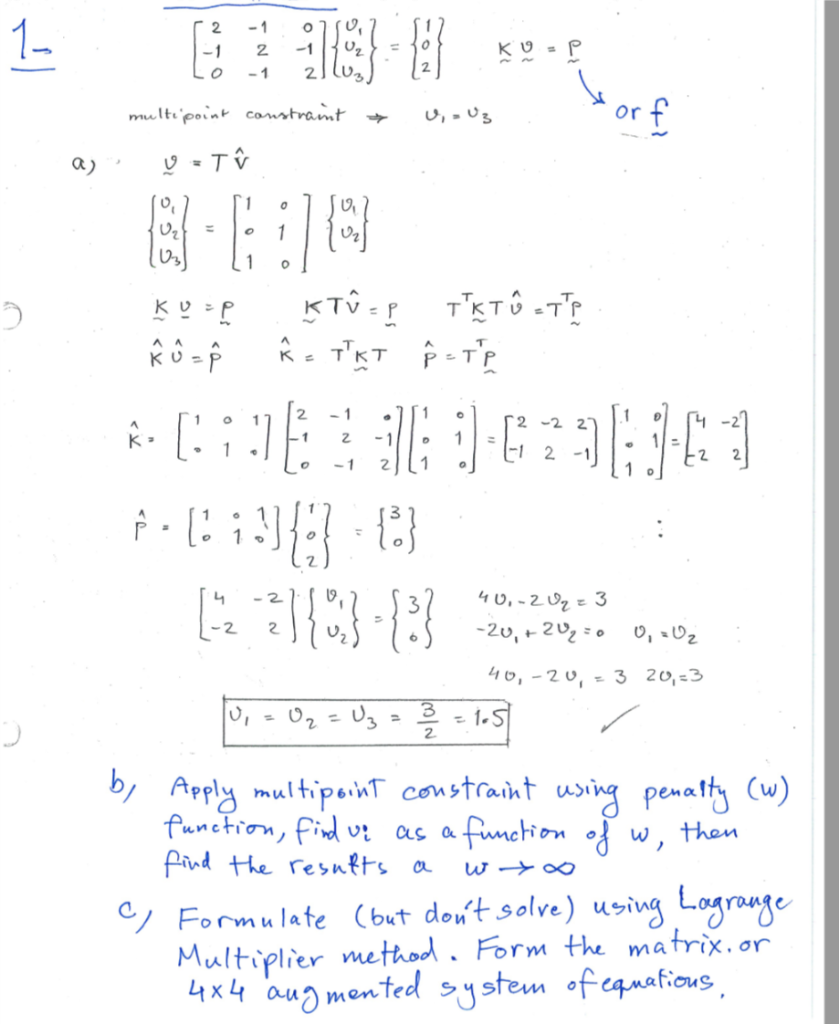 1-
[2 -1 0; -1 2 -1; 0 -1 2] {υ₁; υ₂; υ₃} = {1; 0; 2} K υ = P
or f
multipoint constraint → υ₁ = υ₃
a) υ = T υ̂
{υ₁; υ₂; υ₃} = [1 0; 0 1; 1 0] {υ₁; υ₂}
K υ = P K T υ̂ = P TᵀK T υ̂ = TᵀP
K̂ υ̂ = P̂ K̂ = TᵀKT P̂ = TᵀP
K̂ = [1 0 1; 0 1 0] [2 -1 0; -1 2 -1; 0 -1 2] [1 0; 0 1; 1 0] = [2 -2 2; -1 2 -1] [1 0; 0 1; 1 0] = [4 -2; -2 2]
P̂ = [1 0 1; 0 1 0] {1; 0; 2} = {3; 0}
[4 -2; -2 2] {υ₁; υ₂} = {3; 0}
4υ₁ - 2υ₂ = 3
-2υ₁ + 2υ₂ = 0 υ₁ = υ₂
4υ₁ - 2υ₁ = 3 2υ₁ = 3
υ₁ = υ₂ = υ₃ = 3/2 = 1.5 ✓
b) Apply multipoint constraint using penalty (w)
function, find υi as a function of w, then
find the results a w → ∞
c) Formulate (but don't solve) using Lagrange
Multiplier method. Form the matrix. or
4x4 augmented system of equations.